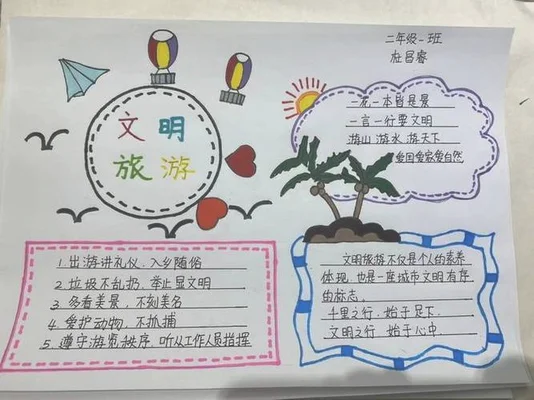 二年级一班
杜昌睿
文明
旅游
一花一木皆是景
一言一行要文明
游山游水游天下
爱国爱家爱自然
1. 出游讲礼仪、入乡随俗
2. 垃圾不乱扔、举止显文明
3. 多看美景，不刻美名
4. 爱护动物，不抓捕
5. 遵守游览秩序，听从工作人员指挥
文明旅游不仅是个人的素养
体现，也是一座城市文明有序
的标志。
千里之行，始于足下，
文明之行，始于心中。